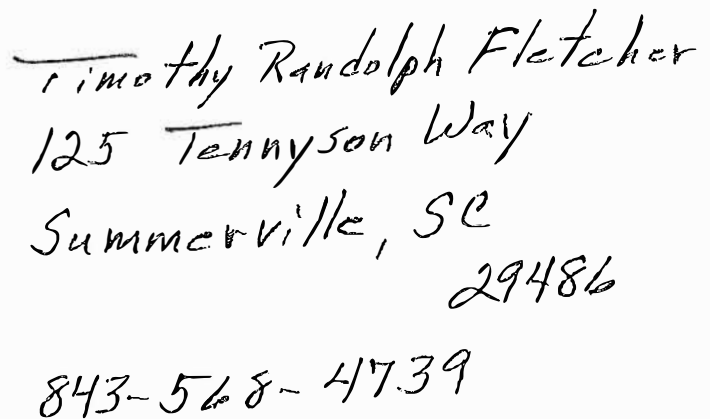 Timothy Randolph Fletcher
125 Tennyson Way
Summerville, SC
29486
843-568-4739